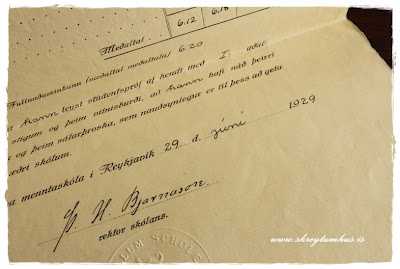 6.12 6.18
Medaltal. 6.20
Fullnaðareinkunn (meðaltal meðaltala) 6.20
hann leyst stúdentspróf af hendi með I. aðal
stigum og þeim vitnisburði, að hann hafi náð þeirri
og þeim sálarþroska, sem nauðsynlegur er til þess að geta
æðri skólum.
menntaskóla í Reykjavík 29. d. júní 1929
Þ. H. Bjarnason.
rektor skólans.
www.skreytumhus.is